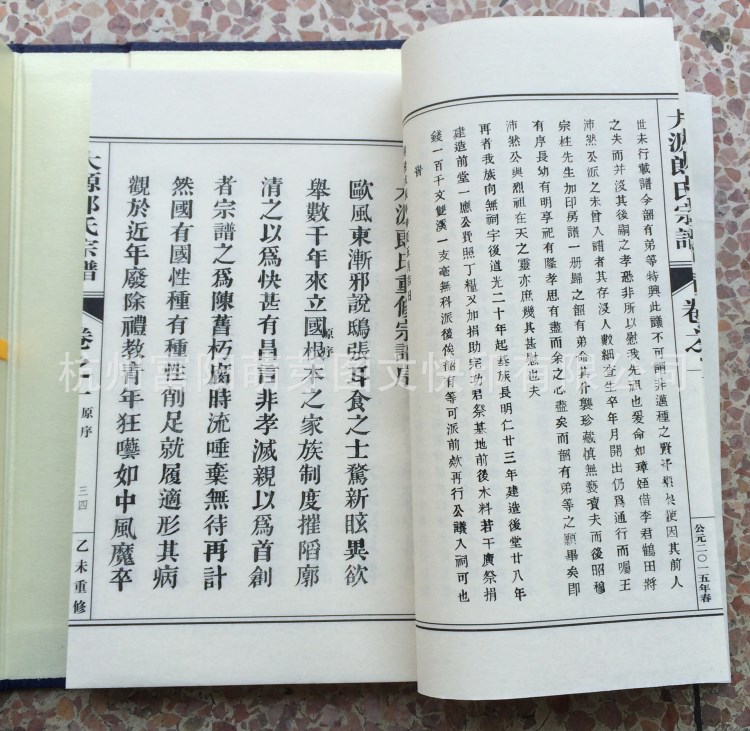 大源郎氏宗譜 卷之一
公元二〇一五年春
世未行載譜今韶有弟等特興此議不可謂非邁種之賢使因其前人
之失而并沒其後嗣之孝恐非所以慰我先祖也爰命如璋姪借李君鶴田將
沛然公派之未曾入譜者其存沒人數細查生卒年月開出仍爲通行而囑王
宗桂先生加印房譜一册歸之韶有弟命其什襲珍藏慎無褻瀆夫而後昭穆
有序長幼有明享祀有隆孝思有盡而余之心盡矣而韶有弟等之願畢矣卽
沛然公與烈祖在天之靈亦庶幾其甚慰也夫
再者我族向無祠宇後道光二十年起經族長明仁廿三年建造後堂廿八年
建造前堂一應公費照丁糧又加捐助宗功君祭基地前後木料若干廣祭捐
錢一百千文雙溪一支毫無科派後俟韶有等可派前欵再行公議入祠可也
大源郎氏重修宗譜序
原序
歐風東漸邪說鴟張耳食之士驚新眩異欲
舉數千年來立國根本之家族制度摧陷廓
清之以爲快甚有昌言非孝滅親以爲首創
者宗譜之爲陳舊朽腐時流唾棄無待再計
然國有國性種有種性削足就履適形其病
觀於近年廢除禮教青年狂囈如中風魔卒
大源郎氏宗譜 卷一 原序 三四 乙未重修
杭州富阳萌芽图文快印有限公司